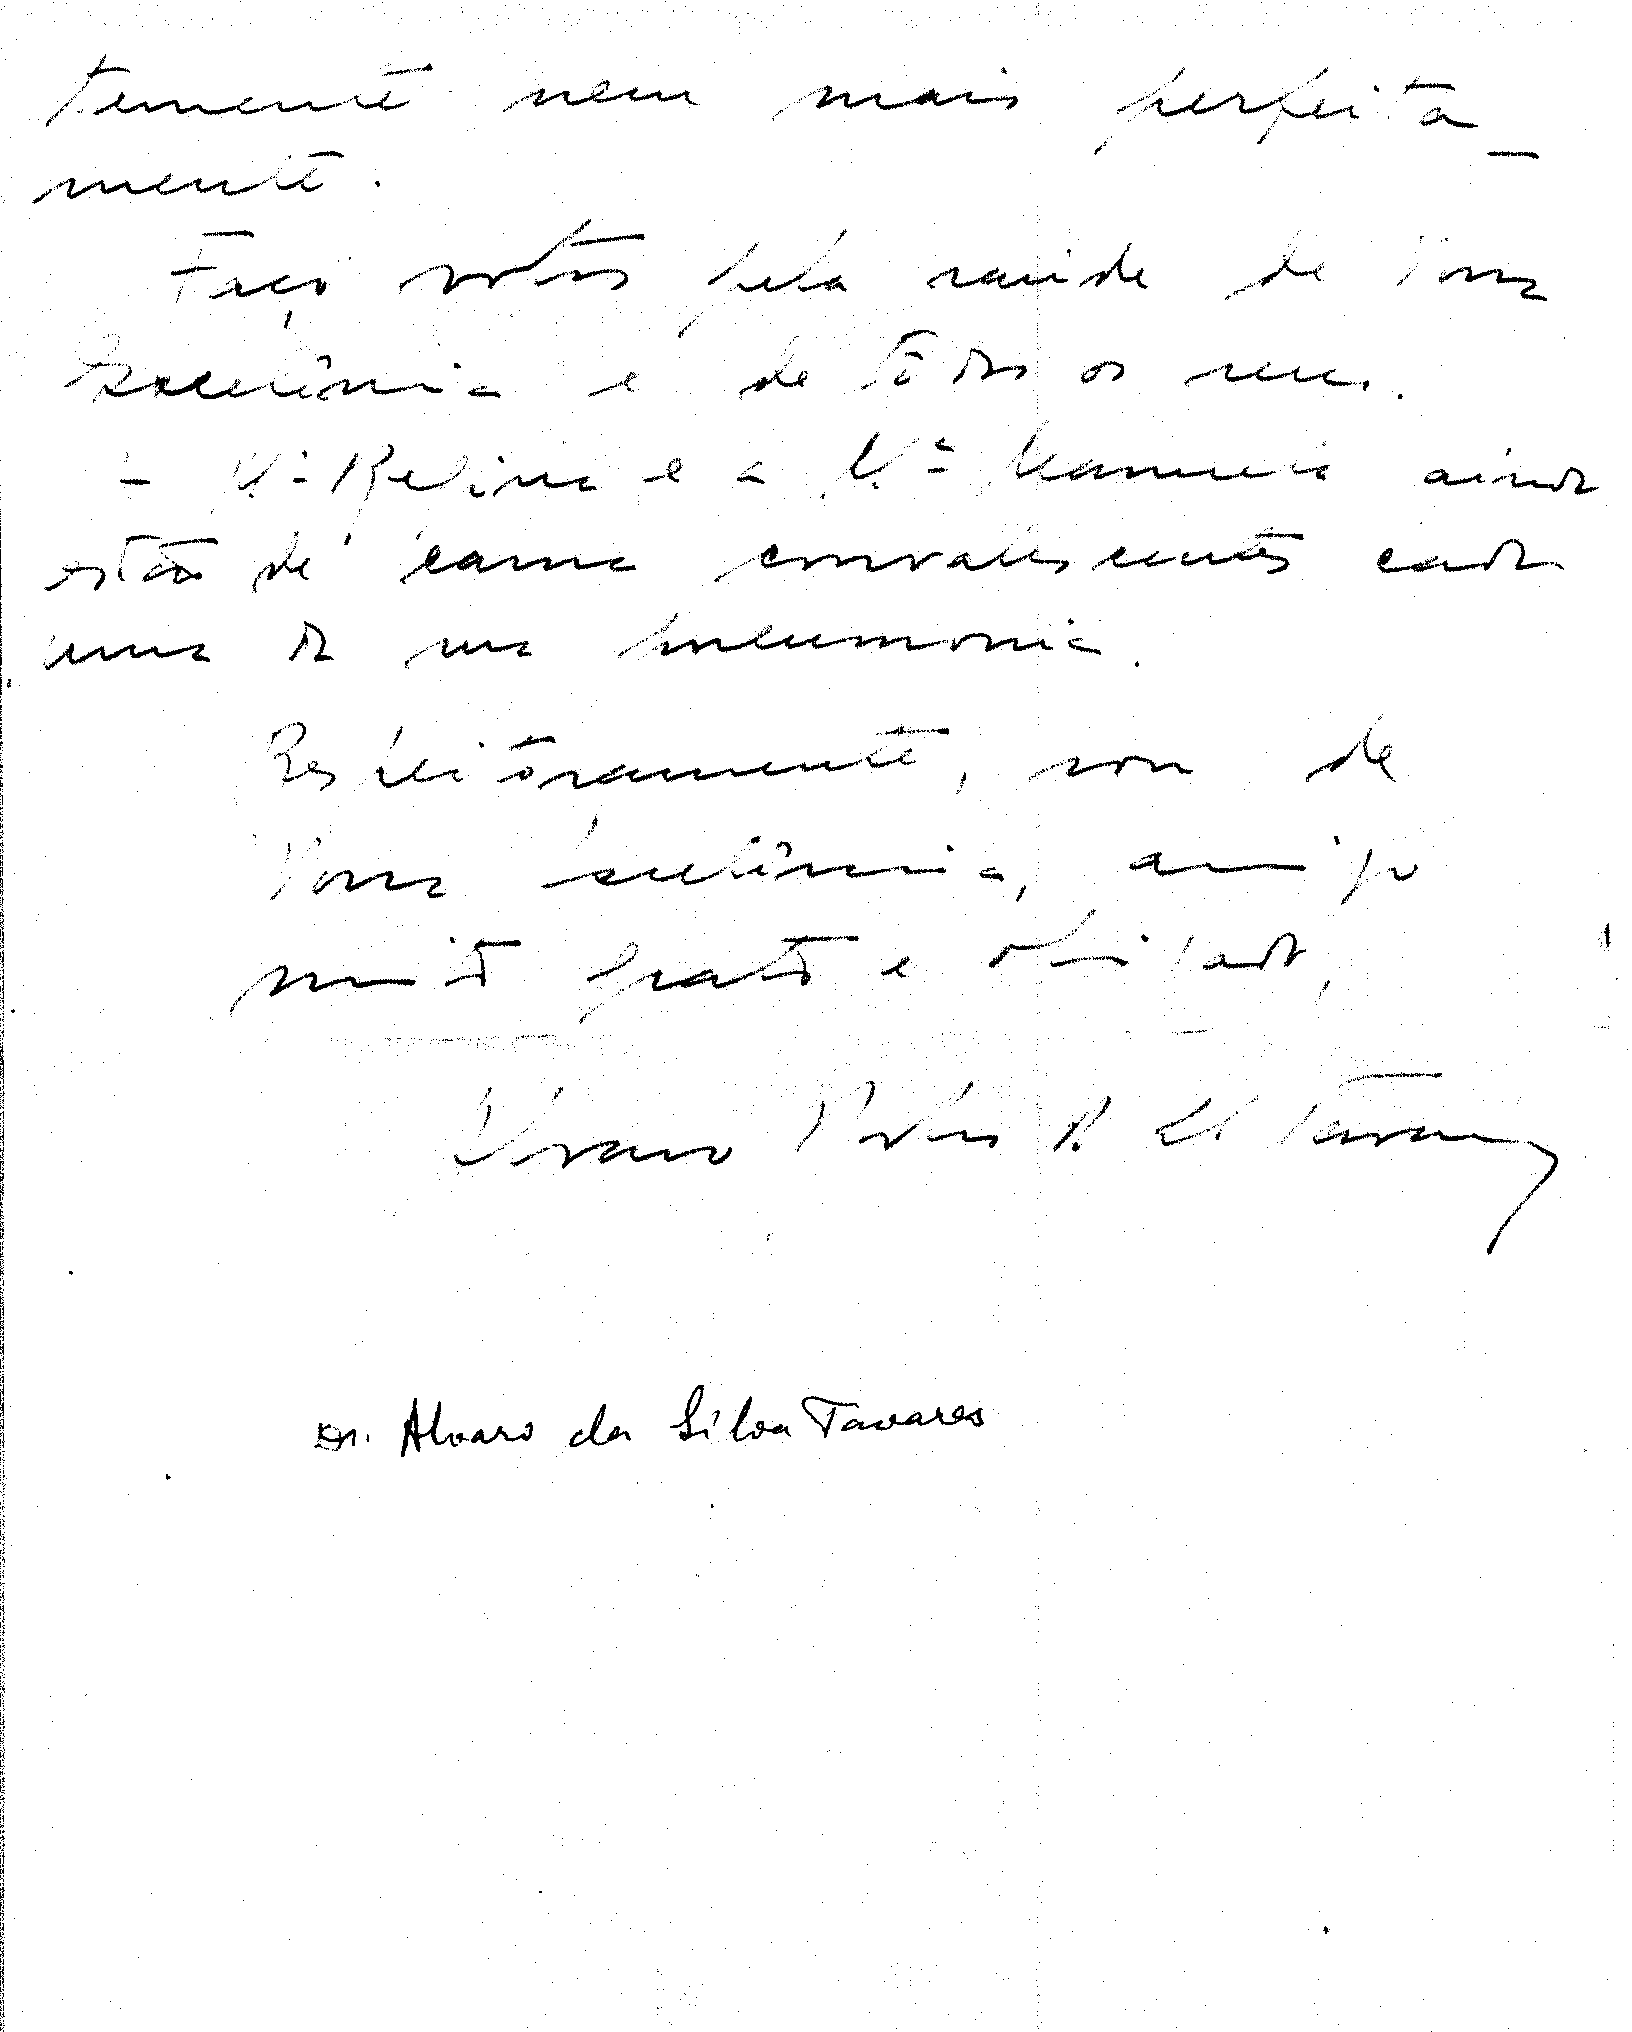 temente nem mais perfeita-
mente.
Faço votos pela saúde de Vossa
Excelência e de todos os seus.
- M.ª Regina e a M.ª Manuela ainda
estão de cama convalescentes cada
uma da sua pneumonia.
Respeitosamente, sou de
Vossa Excelência, amigo
muito grato e obrigado,
Tavares
Dr. Alvaro da Silva Tavares